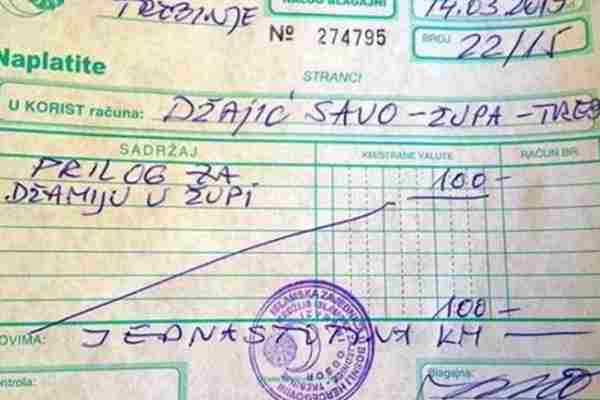 TREBINJE
NALOG BLAGAJNI
14.03.2015
№ 274795
BROJ 22/15
Naplatite
STRANCI
U KORIST računa: DŽAJIĆ SAVO - ŽUPA - TREB
SADRŽAJ KM/STRANE VALUTE RAČUN BR.
PRILOG ZA 100-
DŽAMIJU U ŽUPI
100-
OVIMA: JEDNASTOTINA KM
ISLAMSKA ZAJEDNICA
BOSNI I HERCEGOVINI
ODBOR
ontrola:
Blagajna: